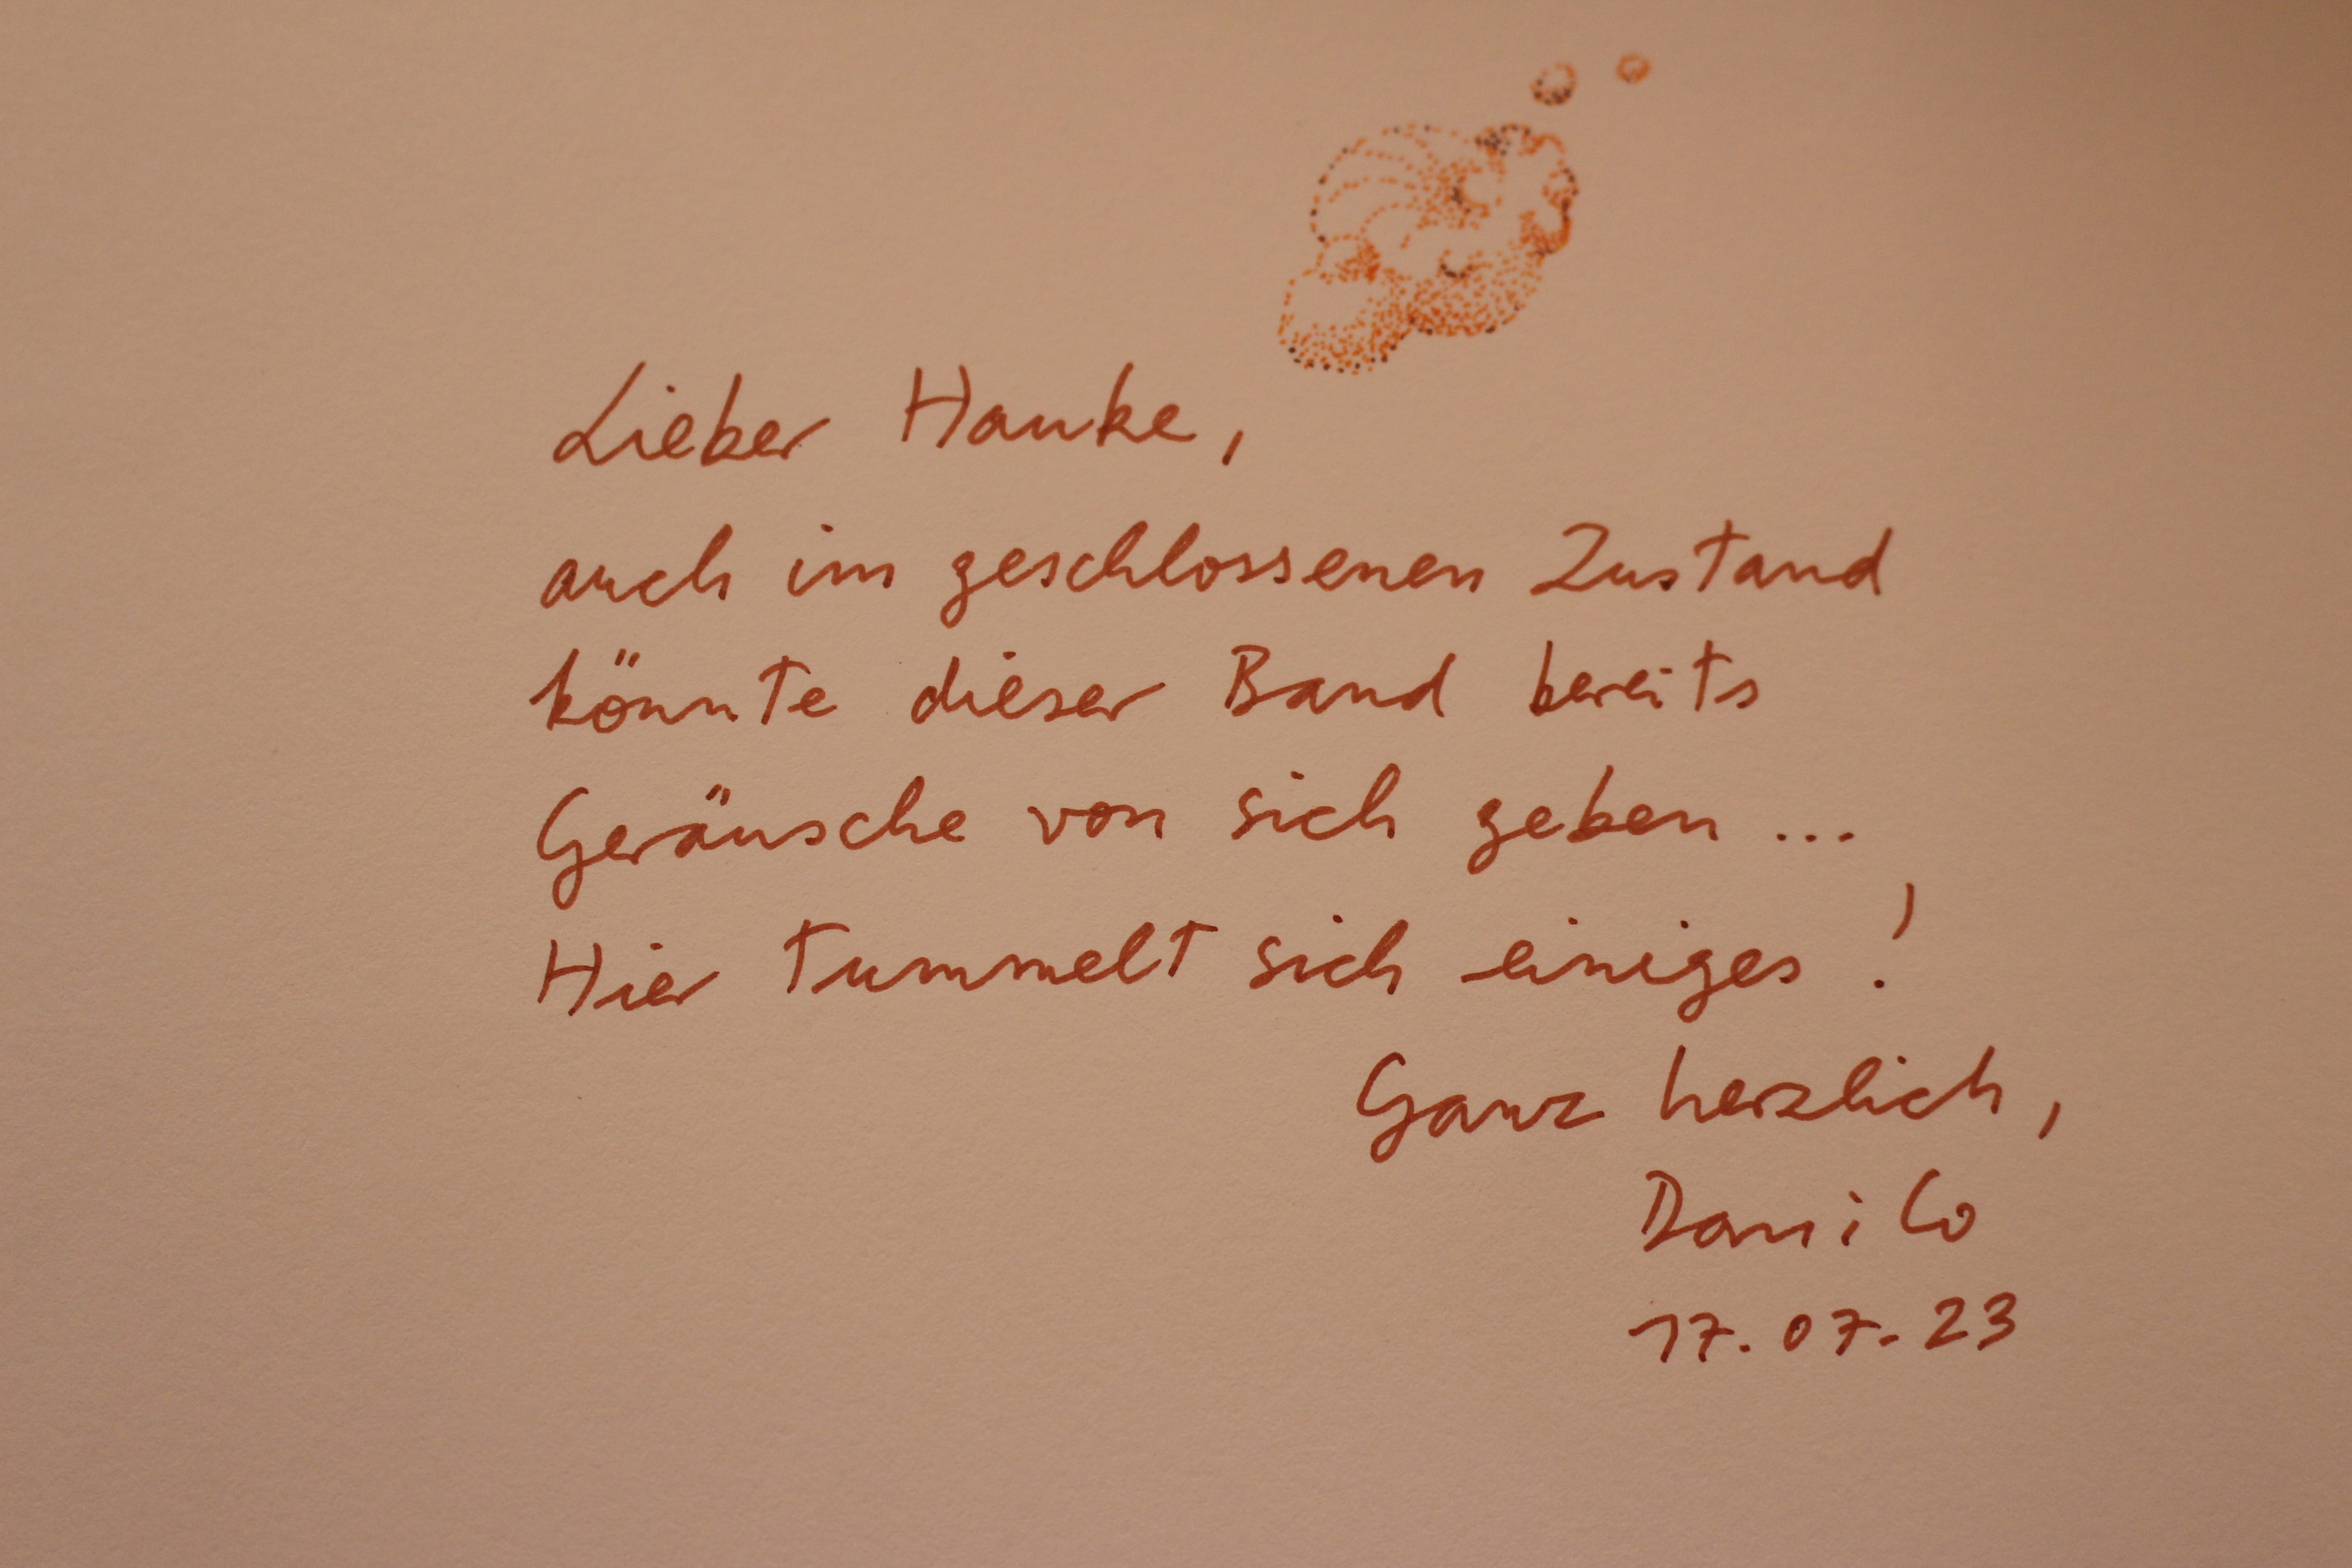 Lieber Hauke,
auch im geschlossenen Zustand
könnte dieser Band bereits
Geräusche von sich geben ...
Hier tummelt sich einiges!
Ganz herzlich,
Dani Co
17.07.23